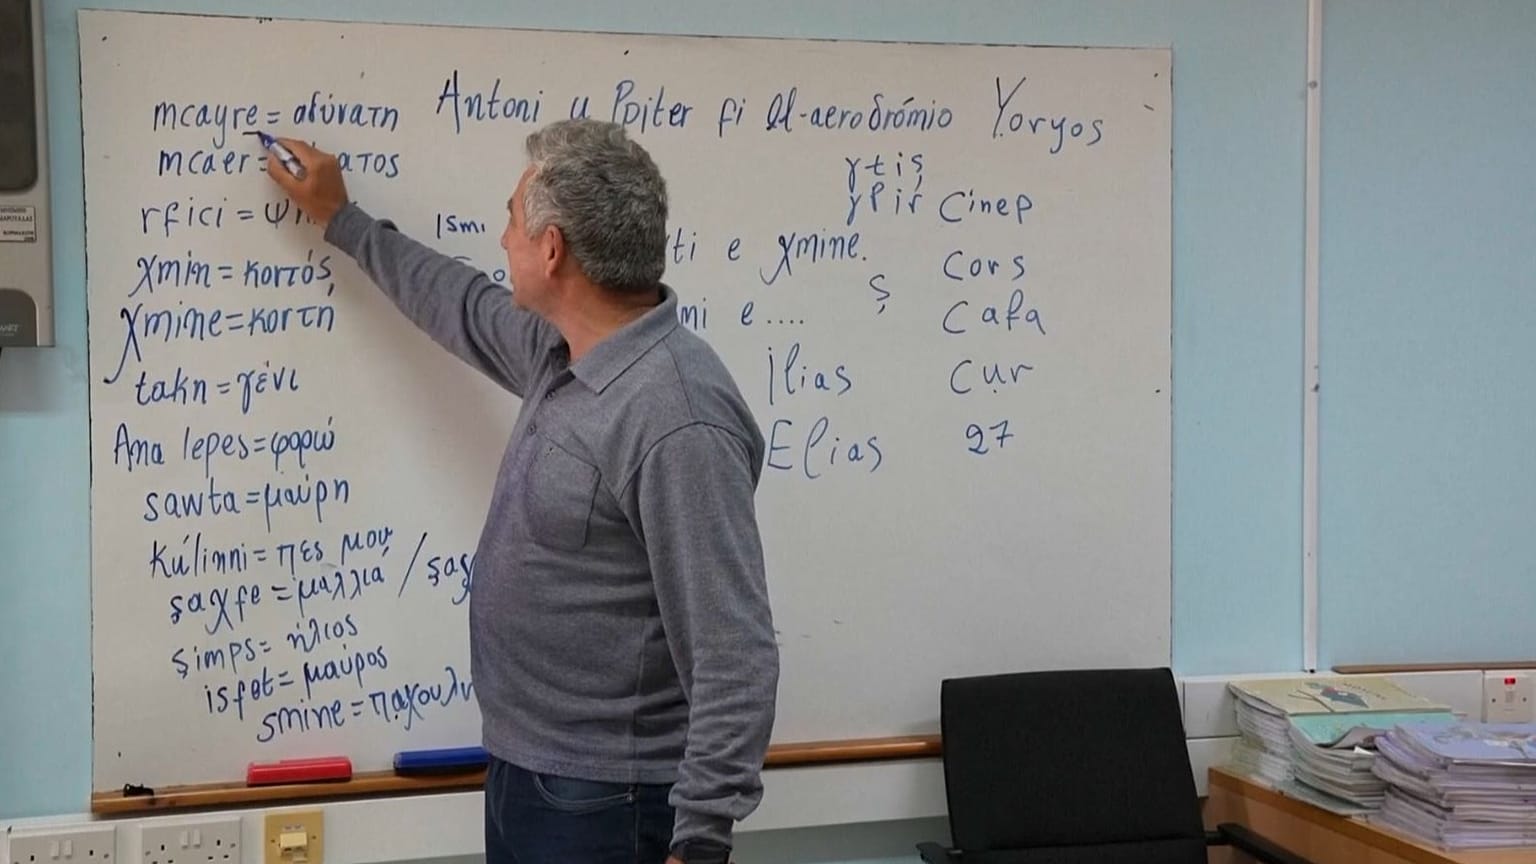 mcayre = αδύνατη
mcaer =
rfici =
χmin = κοντός
χmine = κοντή
takn = γένι
Ana lepes = φορώ
sawta = μαύρη
kúlinni = πες μου
şaχfe = μαλλιά /
şimps = ήλιος
isfet = μαύρος
smine =
Antoni u Ppiter fi el-aerodrómio
Yoryos
γtiş
γliş
e χmine.
ş
e ....
İlias
Elias
Cinep
Cors
Cafa
Cur
27